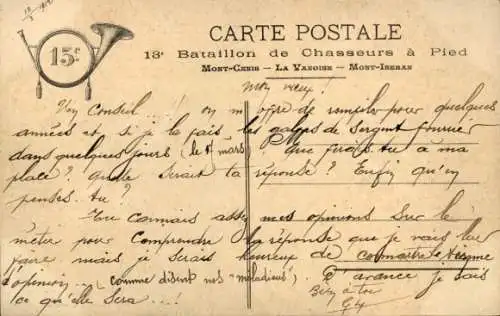 15ᶜ
CARTE POSTALE
13ᵉ Bataillon de Chasseurs à Pied
Mont-Cenis — La Vanoise — Mont-Iseran
Mon vieux !
Un Conseil...! on m'offre de rempiler pour quelques
années et si je la fais les galops de sergent fourrier
dans quelques jours (le 1ᵉʳ mars) Que ferais-tu à ma
place ? Quelle serait ta réponse ? Enfin qu'en
penses-tu ?
Tu connais assez mes opinions sur le
métier pour comprendre la réponse que je vais leur
faire mais je serais heureux de connaître le
d'opinion... (comme disent nos "mélodieux"). D'avance je sais
ce qu'elle sera...!
Bien à toi